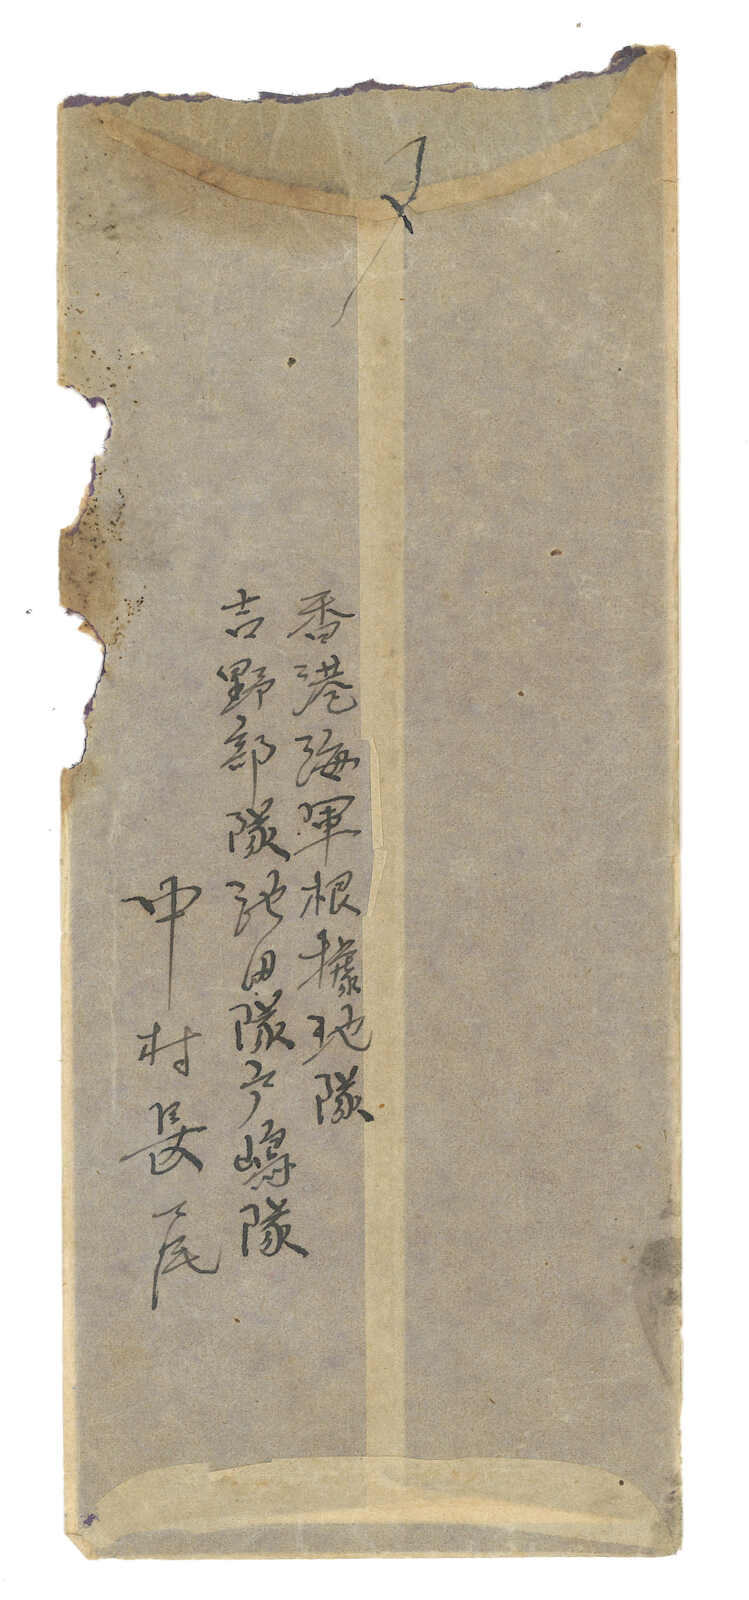 〆
香港海軍根據地隊
吉野部隊池田隊戸嶋隊
中村長